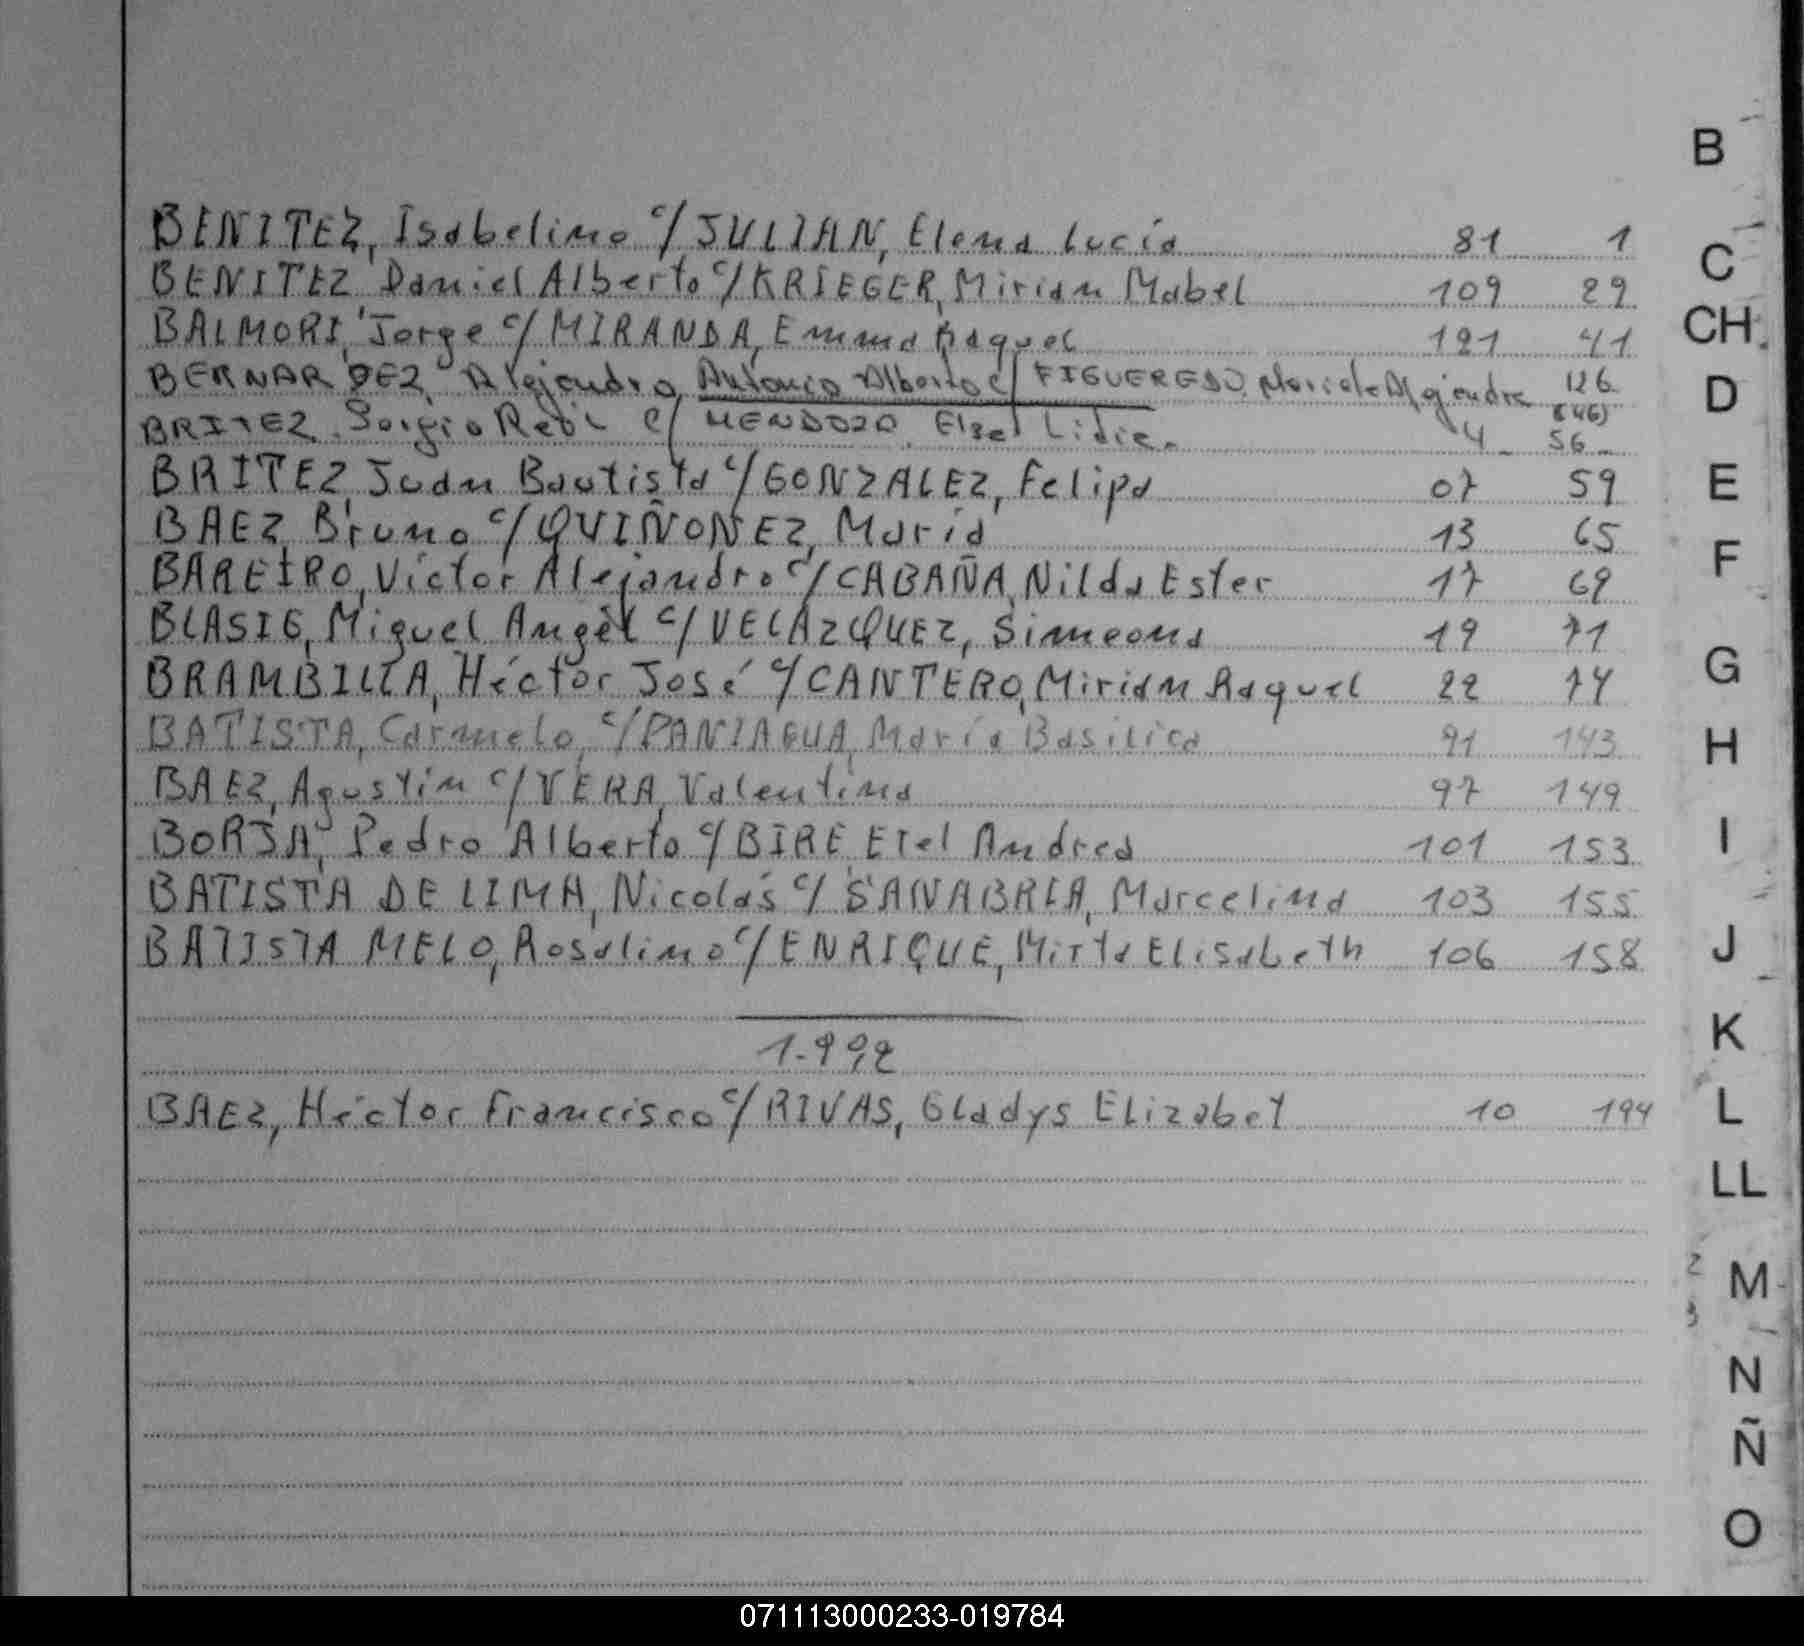 BENITEZ, Isabelino c/ JULIAN, Elena Lucía 81 1
BENITEZ Daniel Alberto c/ KRIEGER, Miriam Mabel 109 29
BALMORI, Jorge c/ MIRANDA, Emma Raquel 121 41
BERNARDEZ, Alejandro Antonio Alberto c/ FIGUEREDO, Alejandra 126 (46)
BRITEZ, Sergio c/ MENDOZA, Elsa Lidia. 4 56
BRITEZ, Juan Bautista c/ GONZALEZ, Felipa 07 59
BAEZ, Bruno c/ QUIÑONEZ, María 13 65
BAREIRO, Víctor Alejandro c/ CABAÑA, Nilda Ester 17 69
BLASIG, Miguel Angel c/ VELAZQUEZ, Simeona 19 71
BRAMBILLA, Héctor José c/ CANTERO, Miriam Raquel 22 74
BATISTA, Carmelo, c/ PANIAGUA, María Basilica 91 143
BAEZ, Agustín c/ VERA, Valentina 97 149
BORJA, Pedro Alberto c/ BIRE, Etel Andrea 101 153
BATISTA DE LIMA, Nicolás c/ SANABRIA, Marcelina 103 155
BATISTA MELO, Rosalino c/ ENRIQUE, Mirta Elisabeth 106 158
1.992
BAEZ, Héctor Francisco c/ RIVAS, Gladys Elizabet 10 194
B
C
CH
D
E
F
G
H
I
J
K
L
LL
M
N
Ñ
O
071113000233-019784